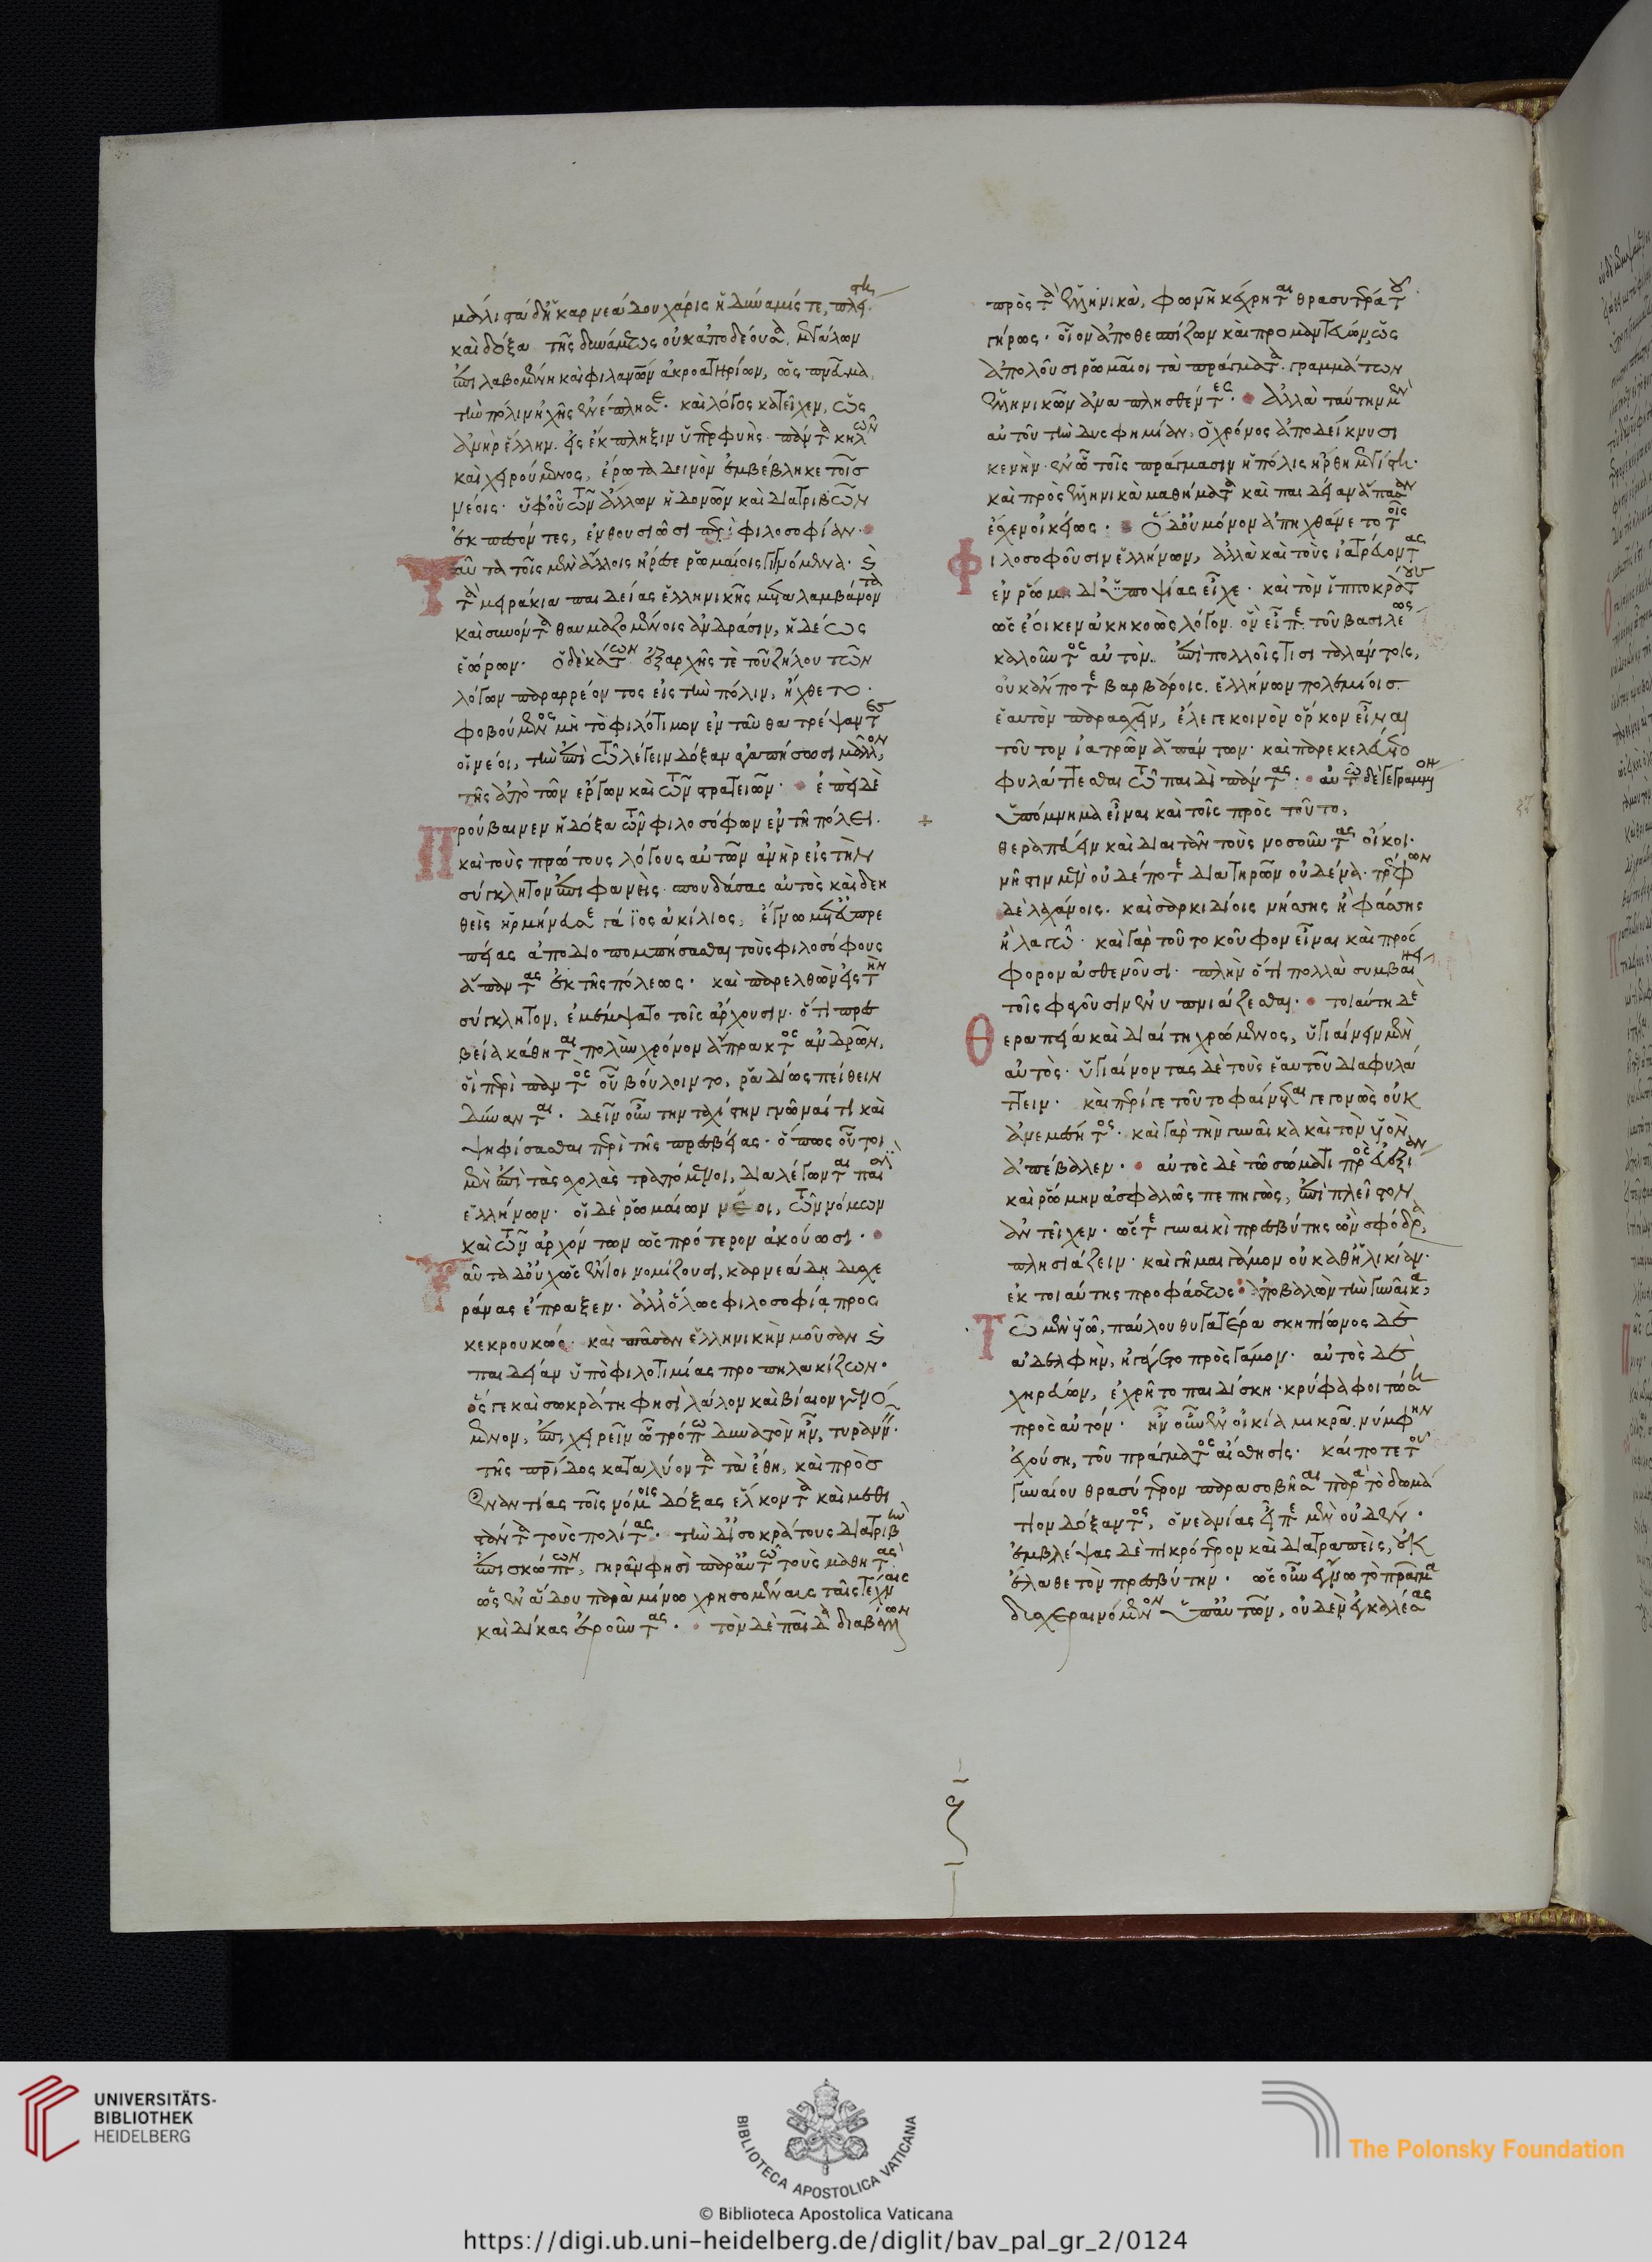 μάλιστα δ' ἡ καρνεάδου χάρις ἡ δύναμίς τε, πλείστη
καὶ δόξα τῆς δυνάμεως οὐκ ἀποδέουσα. μεγάλων
ἐπιλαβομένη καὶ φιλανθρώπων ἀκροατηρίων, ὡς πνεῦμα
τὴν πόλιν ἠχῆς ἐνέπλησε. καὶ λόγος κατεῖχεν, ὡς
ἀνὴρ ἕλλην. εἰς ἔκπληξιν ὑπερφυὴς πάντα κηλῶν
καὶ χειρούμενος, ἔρωτα δεινὸν ἐμβέβληκε τοῖς
νέοις. ὑφ' οὗ τῶν ἄλλων ἡδονῶν καὶ διατριβῶν
ἐκπεσόντες, ἐνθουσιῶσι περὶ φιλοσοφίαν.
Ταῦτα τοῖς μὲν ἄλλοις ἤρεσκε ῥωμαίοις γινόμενα. καὶ
τὰ μειράκια παιδείας ἑλληνικῆς μεταλαμβάνοντα
καὶ συνόντα θαυμαζομένοις ἀνδράσιν, ἡδέως
ἑώρων. ὁ δὲ κάτων ἐξ ἀρχῆς τε τοῦ ζήλου τῶν
λόγων παραρρέοντος εἰς τὴν πόλιν, ἤχθετο.
φοβούμενος μὴ τὸ φιλότιμον ἐνταῦθα τρέψαντες
οἱ νέοι, τὴν ἐπὶ τῶ λέγειν δόξαν ἀγαπήσωσι μᾶλλον
τῆς ἀπὸ τῶν ἔργων καὶ τῶν στρατειῶν. ἐπεὶ δὲ
Προύβαινεν ἡ δόξα τῶν φιλοσόφων ἐν τῆ πόλει.
καὶ τοὺς πρώτους λόγους αὐτῶν ἀνὴρ εἰς τὴν
σύγκλητον ἐπιφανεὶς. σπουδάσας αὐτὸς καὶ δεη
θεὶς ἡρμήνευσε γάϊος ἀκίλιος, ἔγνω μετ' εὐπρε
πείας ἀποδιοπομπήσασθαι τοὺς φιλοσόφους
ἅπαντας ἐκ τῆς πόλεως. καὶ παρελθὼν εἰς τὴν
σύγκλητον, ἐμέμψατο τοῖς ἄρχουσιν. ὅτι πρεσ
βεία κάθηται πολὺν χρόνον ἄπρακτος ἀνδρῶν,
οἳ περὶ παντὸς οὗ βούλοιντο, ῥαδίως πείθειν
δύνανται. δεῖν οὖν τὴν ταχίστην γνῶναί τι καὶ
ψηφίσασθαι περὶ τῆς πρεσβείας. ὅπως οὗτοι
μὲν ἐπὶ τὰς σχολὰς τραπόμενοι, διαλέγωνται παισὶν
ἑλλήνων. οἱ δὲ ῥωμαίων νέοι, τῶν νόμων
καὶ τῶν ἀρχόντων ὡς πρότερον ἀκούωσι.
Ταῦτα δ' οὐχ ὡς ἔνιοι νομίζουσι, καρνεάδη δυσχε
ράνας ἔπραξεν. ἀλλ' ὅλως φιλοσοφία προσ
κεκρουκὼς. καὶ πᾶσαν ἑλληνικὴν μοῦσαν καὶ
παιδείαν ὑπὸ φιλοτιμίας προπηλακίζων.
ὅς γε καὶ σωκράτη φησὶ λάλον καὶ βίαιον γενό
μενον, ἐπιχειρεῖν ὧ τρόπω δυνατὸν ἦν, τυραννεῖν
τῆς πατρίδος καταλύοντα τὰ ἔθη, καὶ πρὸς
ἐναντίας τοῖς νόμοις δόξας ἕλκοντα καὶ μεθι
στάντα τοὺς πολίτας. τὴν δ' ἰσοκράτους διατριβὴν
ἐπισκώπτων, γηρᾶν φησὶ παρ' αὐτῶ τοὺς μαθητὰς
ὡς ἐν ἅδου παρὰ μίνω χρησομένους ταῖς τέχναις
καὶ δίκας ἐροῦντας. τὸν δὲ παῖδα διαβάλλων
πρὸς τὰ ἑλληνικὰ, φωνῆ κέχρηται θρασυτέρα τοῦ
γήρως. οἷον ἀποθεσπίζων καὶ προμαντεύων, ὡς
ἀπολοῦσι ῥωμαῖοι τὰ πράγματα γραμμάτων
ἑλληνικῶν ἀναπλησθέντες. ἀλλὰ ταύτην μὲν
αὐτοῦ τὴν δυσφημίαν, ὁ χρόνος ἀποδείκνυσι
κενὴν. ἐν ὧ τοῖς πράγμασιν ἡ πόλις ἤρθη μεγίστη.
καὶ πρὸς ἑλληνικὰ μαθήματα καὶ παιδείαν ἅπασαν
ἔσχεν οἰκείως. ὁ δ' οὐ μόνον ἀπηχθάνετο τοῖς
Φιλοσοφοῦσιν ἑλλήνων, ἀλλὰ καὶ τοὺς ἰατρεύοντας
ἐν ῥώμη δι' ὑποψίας εἶχε. καὶ τὸν ἱπποκράτους
ὡς ἔοικεν ἀκηκοὼς λόγον. ὃν εἶπε τοῦ βασιλέως
καλοῦντος αὐτὸν. ἐπὶ πολλοῖς τισι ταλάντοις,
οὐκ ἄν ποτε βαρβάροις. ἑλλήνων πολεμίοις
ἑαυτὸν παρασχεῖν, ἔλεγε κοινὸν ὅρκον εἶναι
τοῦτον ἰατρῶν ἁπάντων. καὶ παρεκελεύετο
φυλάττεσθαι τῶ παιδὶ πάντας. αὐτῶ δὲ γεγραμμένον
ὑπόμνημα εἶναι καὶ τοῖς πρὸς τοῦτο,
θεραπεύειν καὶ διαιτᾶν τοὺς νοσοῦντας οἴκοι.
νῆστιν μὲν οὐδέποτε διατηρῶν οὐδένα. τρέφων
δὲ λαχάνοις. καὶ σαρκιδίοις νήσσης ἢ φάσσης
ἢ λαγῶ. καὶ γὰρ τοῦτο κοῦφον εἶναι καὶ πρόσ
φορον ἀσθενοῦσι. πλὴν ὅτι πολλὰ συμβαίνειν
τοῖς φαγοῦσιν ἐνυπνιάζεσθαι. τοιαύτη δὲ
Θεραπεία καὶ διαίτη χρώμενος, ὑγιαίνειν μὲν
αὐτὸς. ὑγιαίνοντας δὲ τοὺς ἑαυτοῦ διαφυλά
ττειν. καὶ περί γε τοῦτο φαίνεται γεγονὼς οὐκ
ἀνεμέσητος. καὶ γὰρ τὴν γυναῖκα καὶ τὸν υἱὸν
ἀπέβαλεν. αὐτὸς δὲ τῶ σώματι πρὸς εὐεξίαν
καὶ ῥώμην ἀσφαλῶς πεπηγὼς, ἐπὶ πλεῖστον
ἀντεῖχεν. ὥστε γυναικὶ πρεσβύτης ὢν σφόδρα
πλησιάζειν. καὶ γῆμαι γάμον οὐ καθ' ἡλικίαν.
ἐκ τοιαύτης προφάσεως. ἀποβαλὼν τὴν γυναῖκα,
Τῶ μὲν υἱῶ, παύλου θυγατέρα σκηπίωνος δὲ
ἀδελφὴν, ἠγάγετο πρὸς γάμον. αὐτὸς δὲ
χηρεύων, ἐχρῆτο παιδίσκη κρύφα φοιτώση
πρὸς αὐτόν. ἦν οὖν ἐν οἰκία μικρᾶ νύμφην
ἐχούση, τοῦ πράγματος αἴσθησις. καί ποτε τοῦ
γυναίου θρασύτερον παρασοβῆσαι παρὰ τὸ δωμά
τιον δόξαντος, ὁ νεανίας εἶπε μὲν οὐδὲν.
ἐμβλέψας δὲ πικρότερον καὶ διατραπεὶς, οὐκ
ἔλαθε τὸν πρεσβύτην. ὡς οὖν ἔγνω τὸ πρᾶγμα
δυσχεραινόμενον ὑπ' αὐτῶν, οὐδὲν ἐγκαλέσας
UNIVERSITÄTS-
BIBLIOTHEK
HEIDELBERG
BIBLIOTECA APOSTOLICA VATICANA
The Polonsky Foundation
© Biblioteca Apostolica Vaticana
https://digi.ub.uni-heidelberg.de/diglit/bav_pal_gr_2/0124